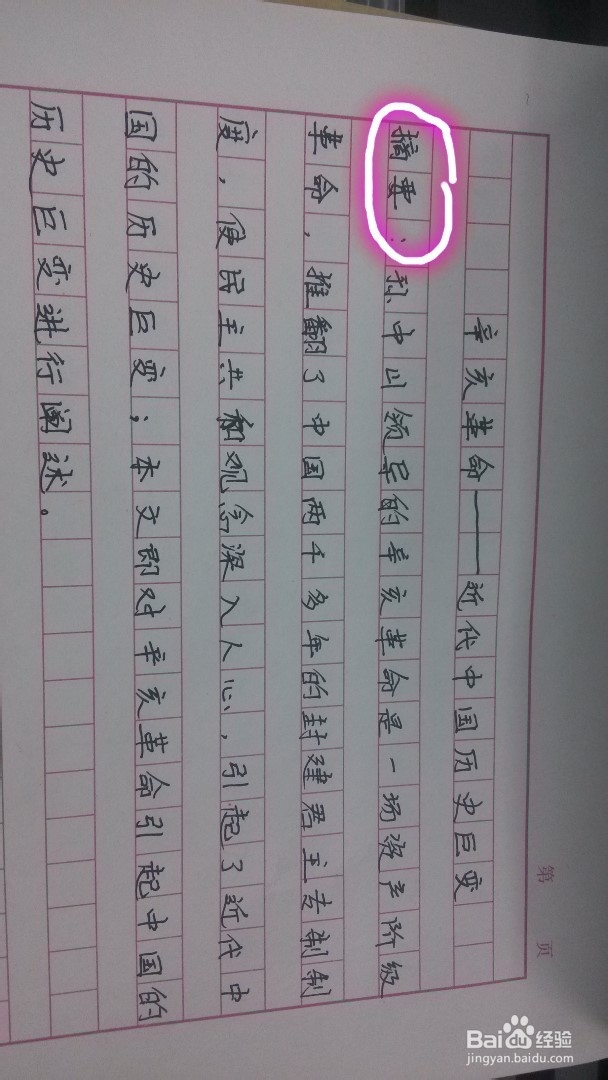 第 页
辛亥革命——近代中国历史巨变
摘要：孙中山领导的辛亥革命是一场资产阶级
革命，推翻了中国两千多年的封建君主专制制
度，使民主共和观念深入人心，引起了近代中
国的历史巨变；本文即对辛亥革命引起中国的
历史巨变进行阐述。
Bai经验
jingyan.baidu.com